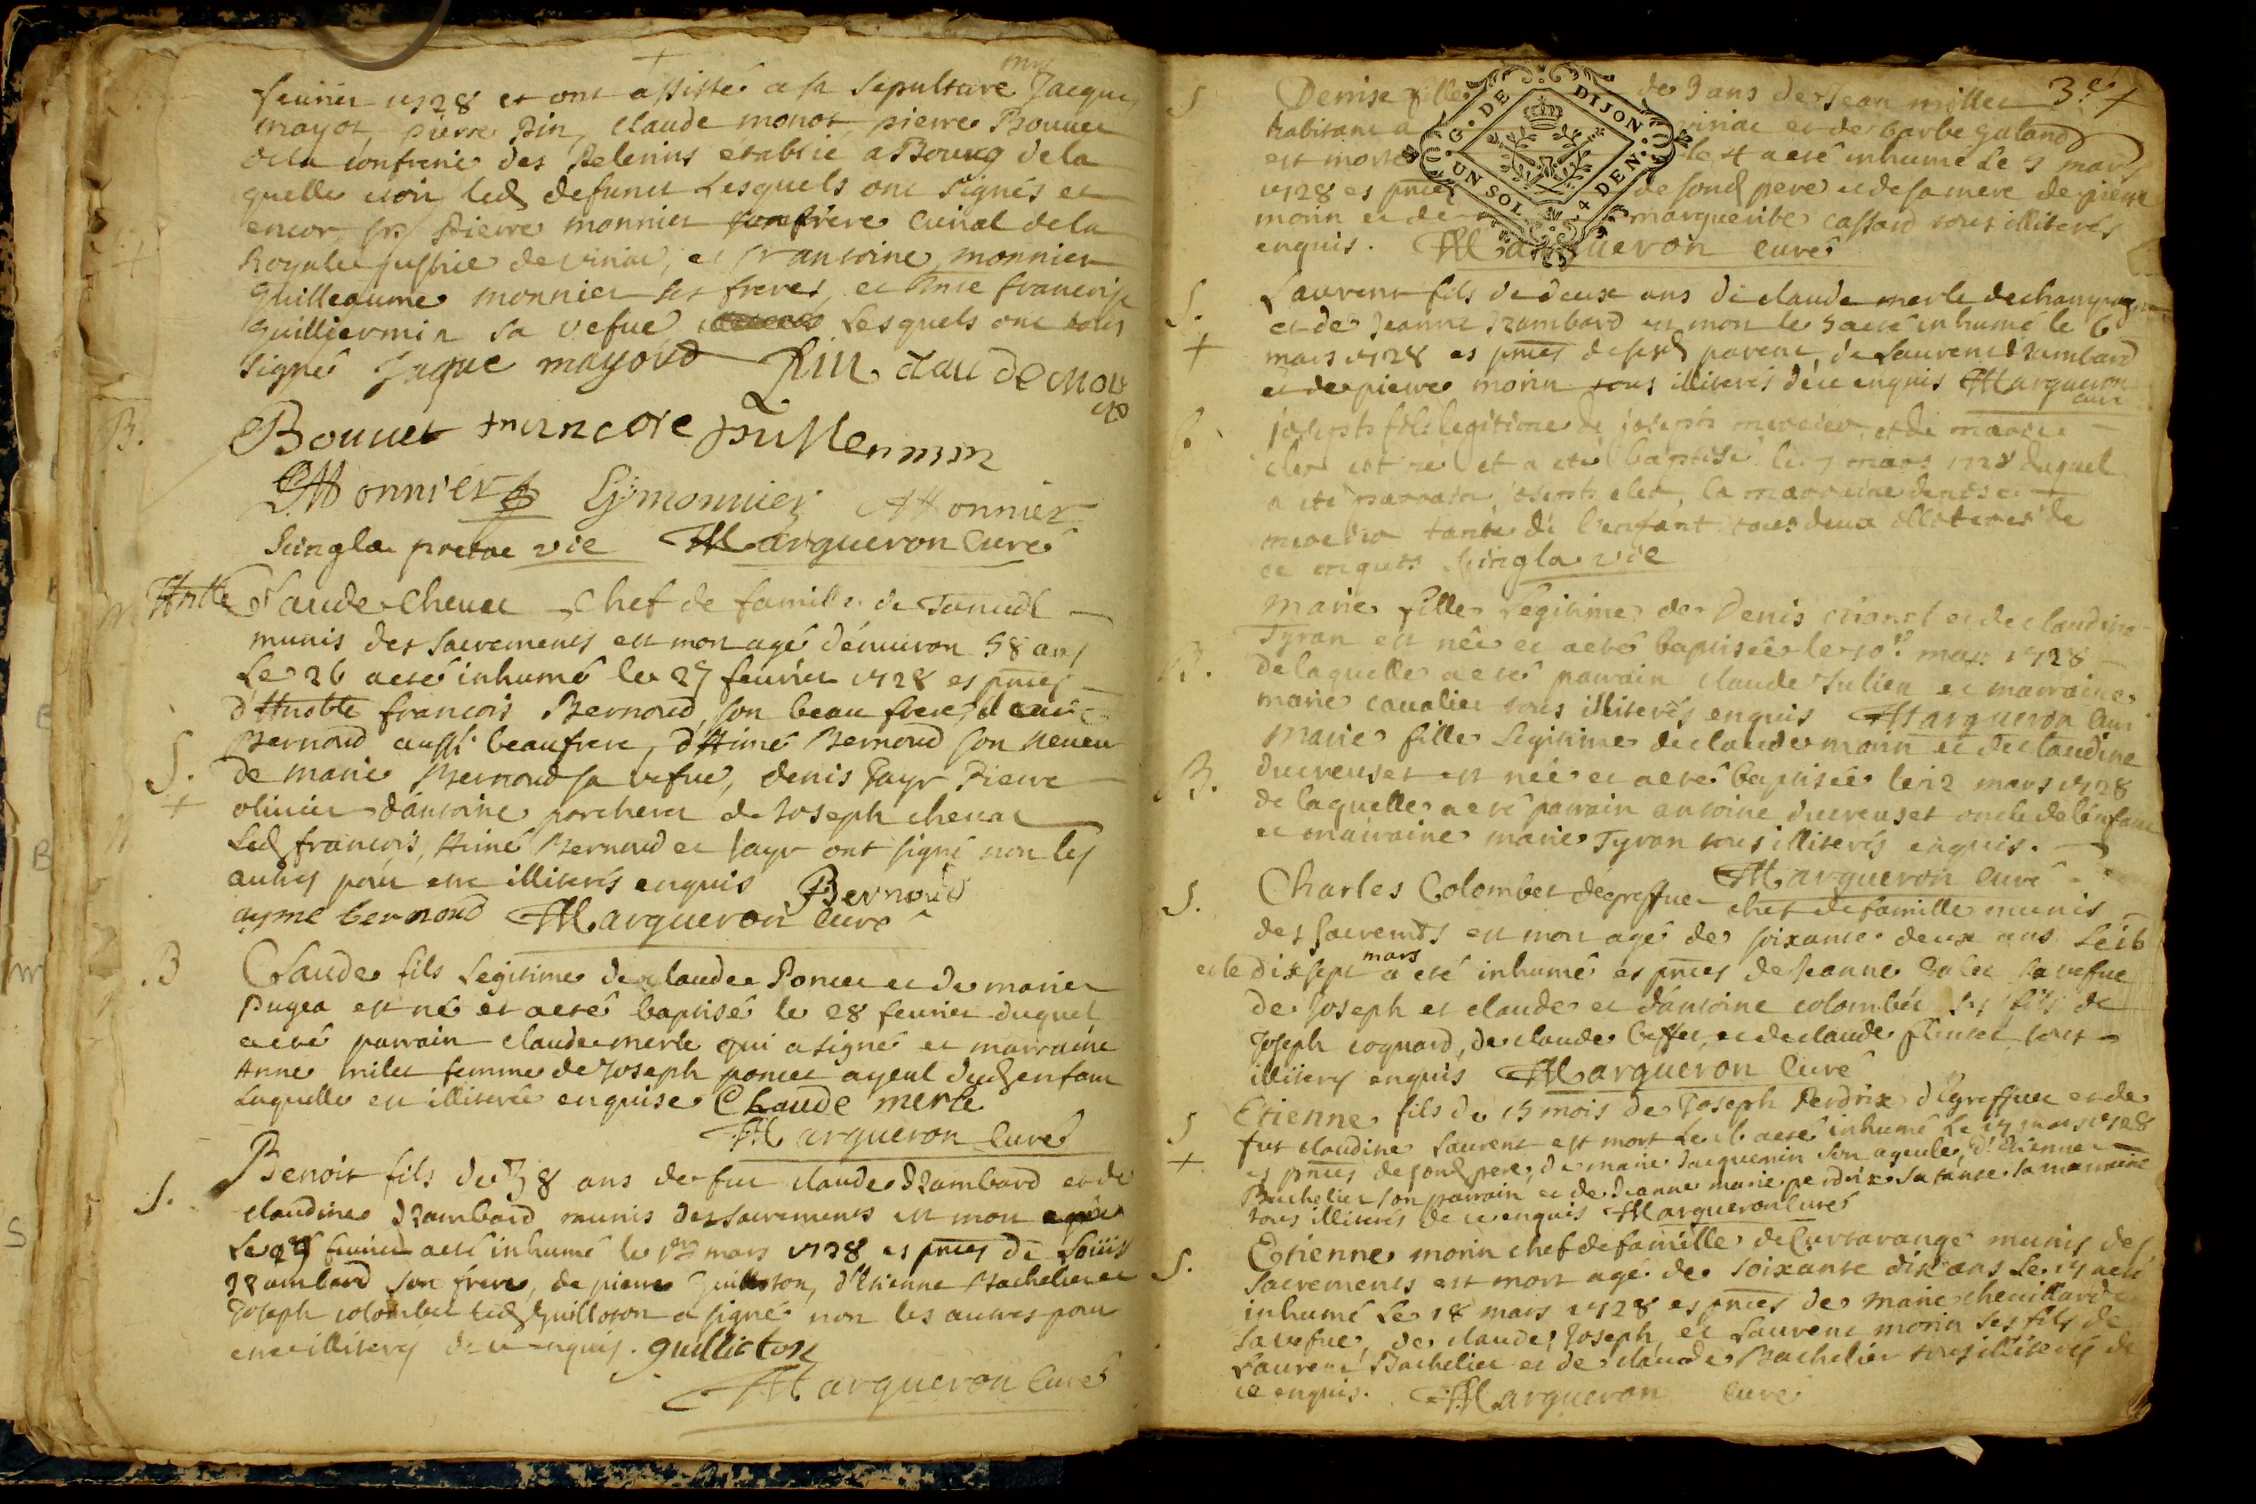 +
fevrier 1728 et ont assisté a sa sepulture Jacque
mayot, pierre Pin, claude monot pierre Bouuet
de la confrerie des Pelerins etablie a Bourg de la
quelle etoit led defunct Lesquels ont signés et
encor sr Pierre monnier curial de la
Royale justice de viriac, et sr antoine monnier
guilleaume monnier ses freres, et françoise
guilliermin sa vefue Lesquels ont tous
signé Jaque mayoud Pin claude monot
Bouuet francoise guillermin
Monnier G monnier Monnier
Singla pretre vie Margueron Curé
S.
+
Claude Chenet Chef de famille de
munis des sacrements est mort agé d'enuiron 58 ans
Le 26 a eté inhumé le 27 feurier 1728 es pnces
françois Bernoud, son beau frere,
Bernoud aussi beaufrere, d'Aimé Bernoud son neueu
de marie Bernoud sa vefue, denis Jayr Pierre
oliuier d'antoine porcheret de Joseph chenat
Led francois, Aimé Bernoud et Jayr ont signé non les
autres pour etre illiterés enquis Bernoud
ayme bernoud Margueron Curé
B
Claude fils Legitime de claude Poncet et de marie
Pugea est né et a eté baptisé le 28 feurier duquel
a eté parrain claude merle qui a signé et marraine
Anne milet femme de Joseph poncet ayeul dud enfant
Laquelle est illiterée enquise Claude merle
Margueron Curé
S.
Benoit fils de 38 ans de fut claude Rambard et de
claudine Rambard munis des sacrements est mort
Le 29 feurier a eté inhumé le 1er mars 1728 es pnces de Louis
Rambard son frere, de pierre Guilloton, d'Etienne Bachelier et
Joseph colombet led Guilloton a signé non les autres pour
etre illiterés de ce enquis. guilloton
Margueron Curé
3e +
G. DE DIJON
UN SOL 4 DEN.
S
Denise fille de 9 ans de Jean millet
habitant a viriac et de barbe galand
est morte le 4 a eté inhumé Le 5 mars
1728 es pnces de sond pere et de sa mere de pierre
morin et de marguerite cassard tous illiterés
enquis. Margueron curé
S.
+
Laurent fils de deux ans de claude merle de champagne
et de Jeanne Rambard est mort le 5 a eté inhumé le 6
mars 1728 es pnces de sesd parent, de Laurent Rambard
et de pierre morin tous illiterés de ce enquis Margueron
curé
b
joseph fils legitime de joseph mercier et de marie
clerc est né et a eté baptisé le 7 mars 1728 duquel
a eté parrain joseph clerc, la marraine denise
mercier tante de l'enfant tous deux illiteres de
ce enquis Singla vie
B.
Marie fille Legitime de Denis et de claudine
Tyran est née et a eté baptisée le 10e mars 1728
de laquelle a eté parrain claude Julien et marraine
marie caualier tous illiterés enquis Margueron Curé
B.
Marie fille Legitime de claude morin et de claudine
ducreuset est née et a eté baptisée le 12 mars 1728
de laquelle a eté parrain antoine ducreuset oncle de l'enfant
et marraine marie Tyran tous illiterés enquis.
Margueron Curé
S.
Charles Colombet degreffue chef de famille munis
des sacremts est mort agé de soixante deux ans Le 16
et le dix sept mars a eté inhumé es pnces de Jeanne sa vefue
de Joseph et claude et d'antoine colombet ses fils de
Joseph cognard, de claude et de claude tous
illiterés enquis Margueron Curé
S
+
Etienne fils de 15 mois de Joseph Perdrix d'Egreffue et de
fut claudine Laurent est mort Le 16 a eté inhumé Le 17 mars 1728
es pnces de sond pere, de marie Jacquemin son ayeule, d'Etienne
Bachelier son parrain et de Jeanne marie perdrix sa tante sa marraine
tous illiterés de ce enquis Margueron Curé
S.
Etienne morin chef de famille de Curtarange munis des
sacrements est mort agé de soixante dix ans Le 17 a eté
inhumé Le 18 mars 1728 es pnces de Marie cheuillard
sa vefue, de claude, Joseph, et Laurent morin ses fils de
Laurent Bachelier et de claude Bachelier tous illiterés de
ce enquis. Margueron Curé